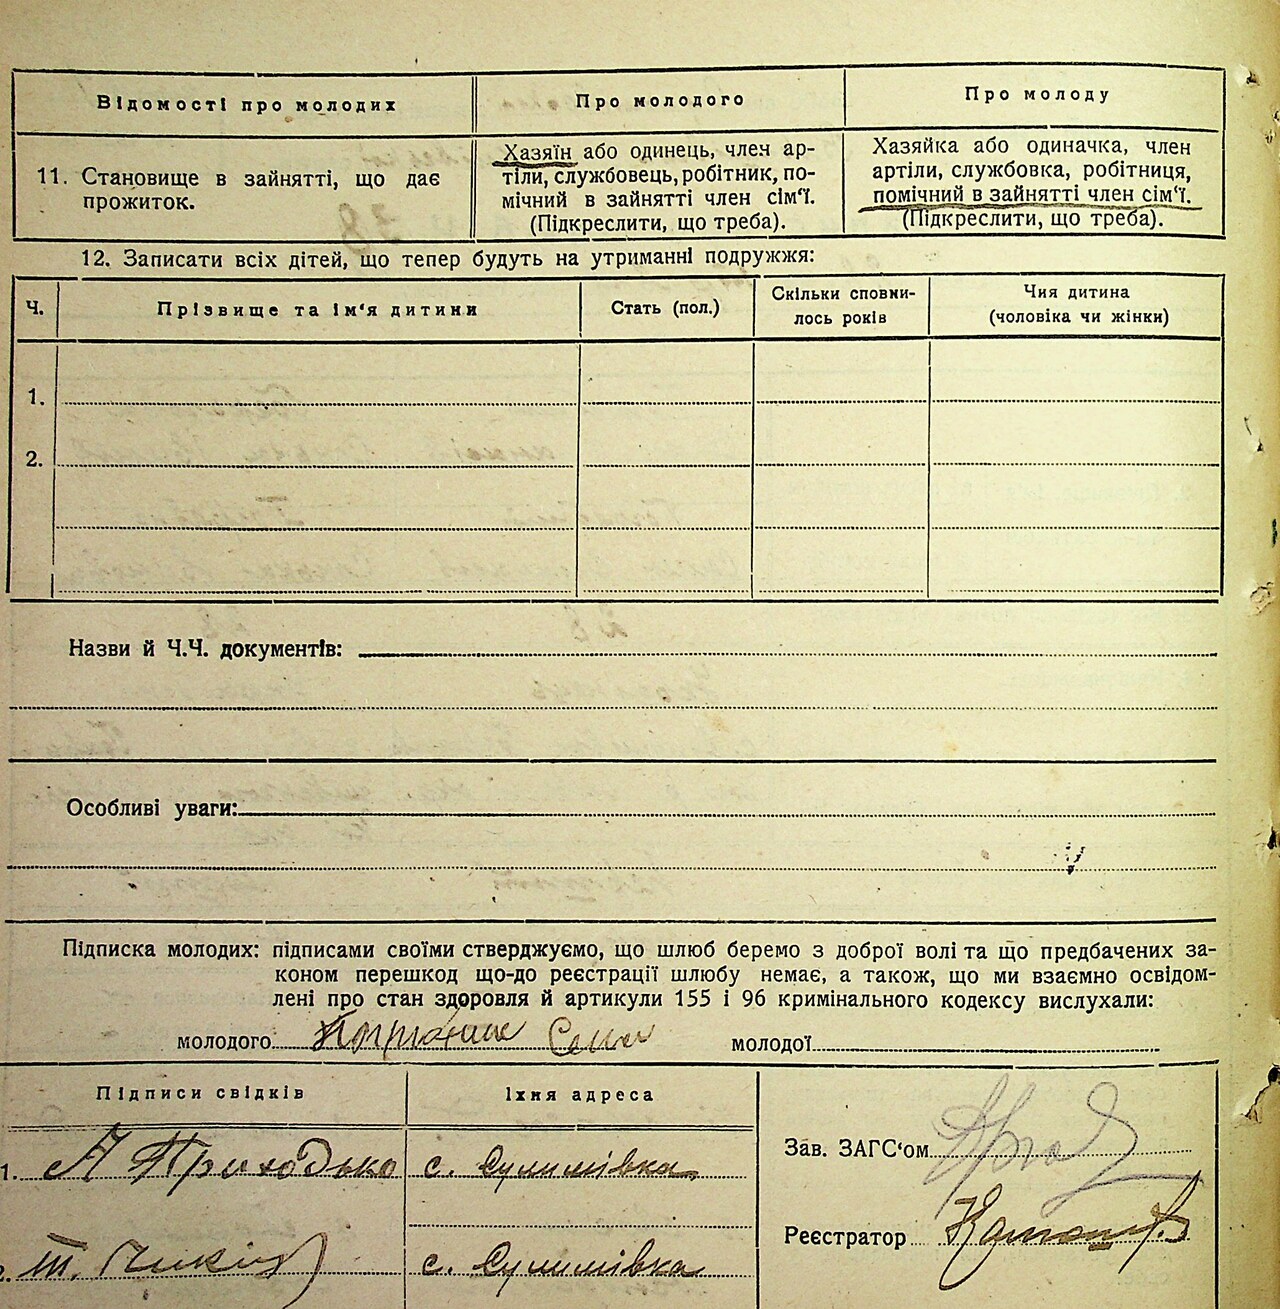 Відомості про молодих
Про молодого
Про молоду
11. Становище в зайнятті, що дає
прожиток.
Хазяїн або одинець, член ар-
тіли, службовець, робітник, по-
мічний в зайнятті член сім'ї.
(Підкреслити, що треба).
Хазяйка або одиначка, член
артіли, службовка, робітниця,
помічний в зайнятті член сім'ї.
(Підкреслити, що треба).
12. Записати всіх дітей, що тепер будуть на утриманні подружжя:
Ч.
Прізвище та ім'я дитини
Стать (пол.)
Скільки сповни-
лось років
Чия дитина
(чоловіка чи жінки)
1.
2.
Назви й Ч.Ч. документів:
Особливі уваги:
Підписка молодих: підписами своїми стверджуємо, що шлюб беремо з доброї волі та що предбачених за-
коном перешкод що-до реєстрації шлюбу немає, а також, що ми взаємно освідом-
лені про стан здоровля й артикули 155 і 96 кримінального кодексу вислухали:
молодого
молодої
Підписи свідків
Їхня адреса
1. А Приходько
с. Сулимівка
Зав. ЗАГС'ом
Реєстратор
2. Т.
с. Сулимівка